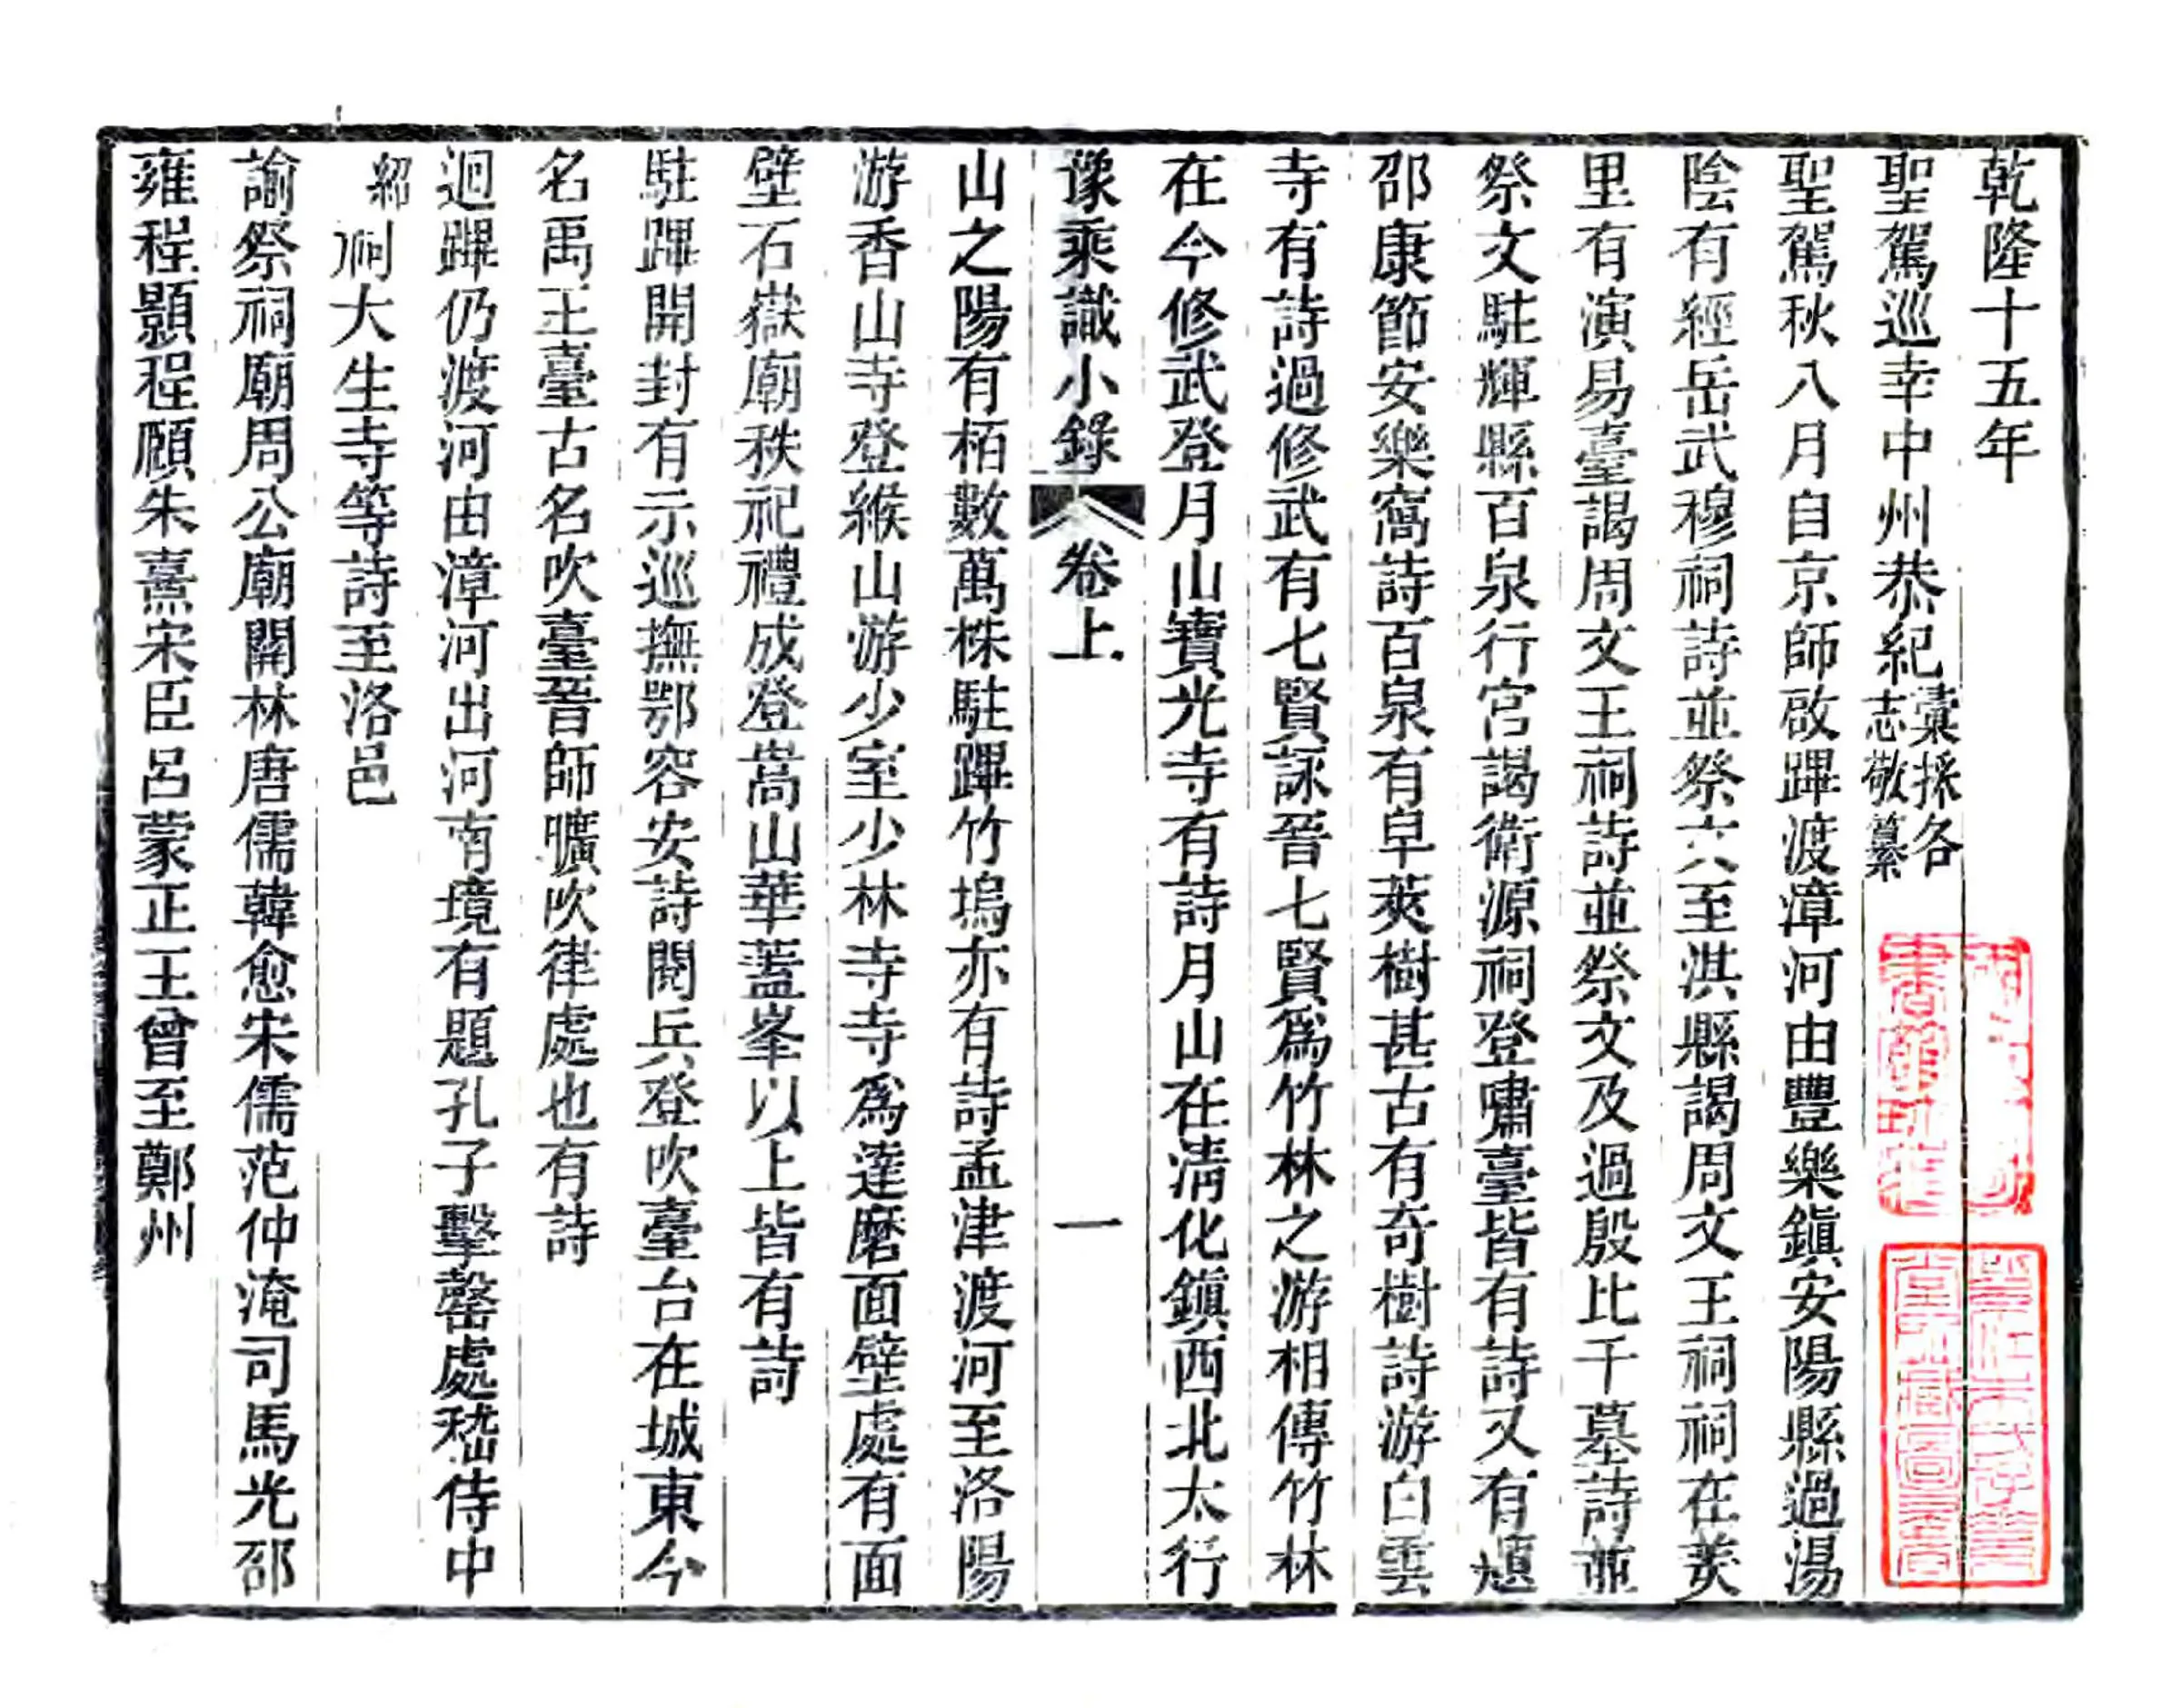 乾隆十五年
聖駕巡幸中州恭紀彙採各志敬纂
聖駕秋八月自京師啟蹕渡漳河由豐樂鎮安陽縣過湯
陰有經岳武穆祠詩並祭六至淇縣謁周文王祠祠在羑
里有演易臺謁周文王祠詩並祭文及過殷比干墓詩並
祭文駐輝縣百泉行宮謁衛源祠登嘯臺皆有詩又有題
邵康節安樂窩詩百泉有皁莢樹甚古有奇樹詩游白雲
寺有詩過修武有七賢詠晉七賢爲竹林之游相傳竹林
在今修武登月山寶光寺有詩月山在清化鎮西北太行
豫乘識小錄 卷上 一
山之陽有栢數萬株駐蹕竹塢亦有詩孟津渡河至洛陽
游香山寺登緱山游少室少林寺寺爲達磨面壁處有面
壁石嶽廟秩祀禮成登嵩山華蓋峯以上皆有詩
駐蹕開封有示巡撫鄂容安詩閱兵登吹臺台在城東今
名禹王臺古名吹臺晉師曠吹律處也有詩
迴蹕仍渡河由漳河出河南境有題孔子擊罄處嵇侍中
紹祠大生寺等詩至洛邑
諭祭祠廟周公廟關林唐儒韓愈宋儒范仲淹司馬光邵
雍程顥程頤朱熹宋臣呂蒙正王曾至鄭州